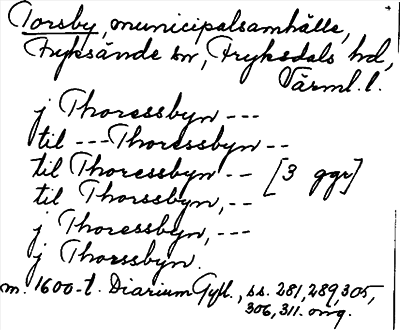 Torsby, municipalsamhälle,
Fryksände sn, Fryksdals hd,
Värml. l.
j Thoressbyn ---
til --- Thoressbyn --
til Thoressbyn -- [3 ggr]
til Thorssbyn, --
j Thoressbyn, ---
j Thorssbyn.
m. 1600-t. Diarium Gyll., ss. 281, 289, 305,
306, 311. orig.